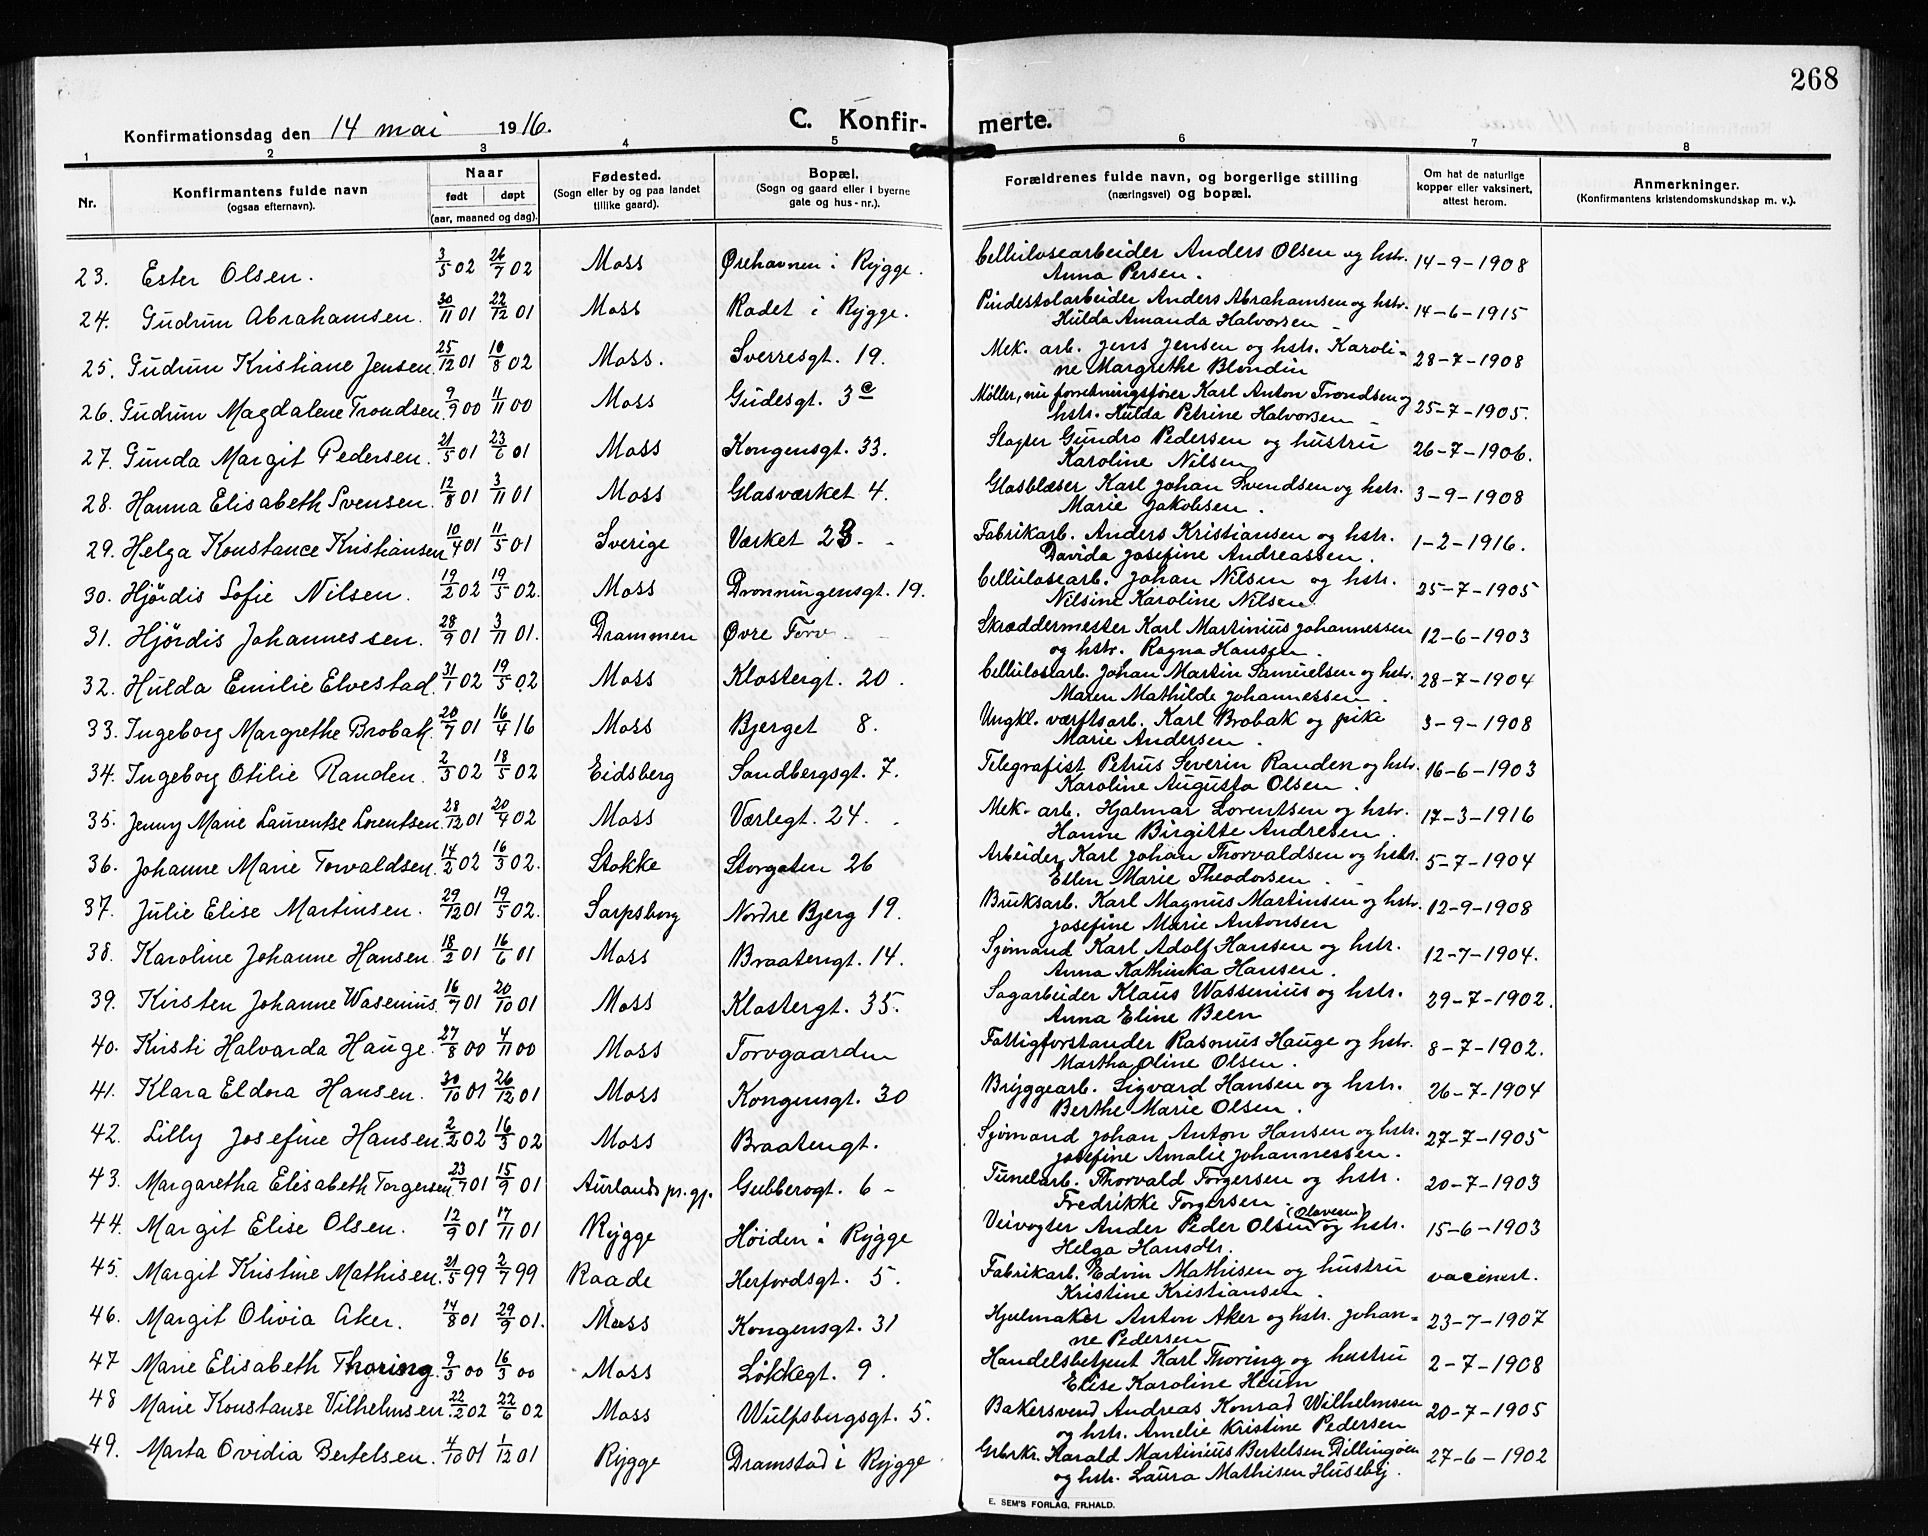 268
Konfirmationsdag den 14 mai 1916.
C. Konfir- merte.
1 2 3 4 5 6 7 8
Nr. Konfirmantens fulde navn (ogsaa efternavn). Naar født døpt (aar, maaned og dag). Fødested. (Sogn eller by og paa landet tillike gaard). Bopæl. (Sogn og gaard eller i byerne gate og hus-nr.). Forældrenes fulde navn, og borgerlige stilling (næringsvei) og bopæl. Om hat de naturlige kopper eller vaksinert, attest herom. Anmerkninger. (Konfirmantens kristendomskundskap m. v.).
23. Ester Olsen. 3/5 02 26/7 02 Moss Ørehavnen i Rygge. Cellulosearbeider Anders Olsen og hstr. 14-9-1908
Anna Persen.
24. Gudrun Abrahamsen. 30/11 01 22/12 01 Moss Rodet i Rygge. Pindestolarbeider Anders Abrahamsen og hstr. 14-6-1915
Hulda Amanda Halvorsen
25. Gudrun Kristiane Jensen. 25/12 01 10/8 02 Moss. Sverresgt. 19. Mek. arb. Jens Jensen og hstr. Karoli- 28-7-1908
ne Margrethe Blondin
26. Gudrun Magdalene Trondsen. 9/9 00 11/11 00 Moss Gudesgt. 3c Møller, nu forretningsfører Karl Anton Trondsen og 25-7-1905.
hstr. Hulda Petrine Halvorsen
27. Gunda Margit Pedersen. 21/5 01 23/6 01 Moss Kongensgt. 33. Slagter Gundro Pedersen og hustru 26-7-1906.
Karoline Nilsen
28. Hanna Elisabeth Svensen. 12/8 01 3/11 01 Moss Glasværket 4. Glasblæser Karl Johan Svendsen og hstr. 3-9-1908
Marie Jakobsen.
29. Helga Konstance Kristiansen 10/4 01 11/5 01 Sverige Værket 23. Fabrikarb. Anders Kristiansen og hstr. 1-2-1916.
Davida Josefine Andreassen.
30. Hjørdis Sofie Nilsen. 19/2 02 19/5 02. Moss Dronningensgt. 19. Cellulosearb. Johan Nilsen og hstr. 25-7-1905
Nilsine Karoline Nilsen
31. Hjørdis Johannessen. 28/9 01 3/11 01. Drammen Øvre Torv Skræddermester Karl Martinius Johannessen 12-6-1903
og hstr. Ragna Hansen.
32. Hulda Emilie Elvestad. 31/1 02 19/5 02 Moss Klostergt. 20. Cellulosearb. Johan Martin Samuelsen og hstr. 28-7-1904
Maren Mathilde Johannessen.
33. Ingeborg Margrethe Brobak. 20/7 01 16/4 16 Moss Bjerget 8. Ungkl. værftsarb. Karl Brobak og pike 3-9-1908
Marie Andersen.
34. Ingeborg Otilie Randen. 2/3 02 18/5 02 Eidsberg Sandbergsgt. 7. Telegrafist Petrus Severin Randen og hstr. 16-6-1903
Karoline Augusta Olsen.
35. Jenny Marie Laurentse Lorentsen. 28/12 01 20/4 02 Moss Værlegt. 24. Mek. arb. Hjalmar Lorentsen og hstr. 17-3-1916
Hanne Birgitte Andresen.
36. Johanne Marie Torvaldsen. 14/2 02 16/3 02. Stokke Storgaten 26 Arbeider Karl Johan Thorvaldsen og hstr. 5-7-1904
Ellen Marie Theodorsen.
37. Julie Elise Martinsen. 29/12 01 19/5 02. Sarpsborg Nordre Bjerg 19. Bruksarb. Karl Magnus Martinsen og hstr. 12-9-1908
Josefine Marie Antonsen
38. Karoline Johanne Hansen. 18/2 01 16/6 01 Moss Braatengt. 14. Sjømand Karl Adolf Hansen og hstr. 12-7-1904.
Anna Kathinka Hansen.
39. Kirsten Johanne Wasenius. 16/7 01 20/10 01 Moss Klostergt. 35. Sagarbeider Klaus Wassenius og hstr. 29-7-1902.
Anna Eline Been
40. Kirsti Halvarda Hauge. 27/8 00 4/11 00 Moss Torvgaarden Fattigforstander Rasmus Hauge og hstr. 8-7-1902.
Martha Oline Olsen.
41. Klara Eldora Hansen. 30/10 01 26/12 01 Moss Kongensgt. 30 Bryggearb. Sigvard Hansen og hstr. 26-7-1904
Berthe Marie Olsen.
42. Lilly Josefine Hansen. 2/2 02 16/3 02 Moss Braatengt. Sjømand Johan Anton Hansen og hstr. 27-7-1905
Josefine Amalie Johannessen.
43. Margaretha Elisabeth Torgersen. 23/7 01 15/9 01 Aurlands pr. gj. Gubberogt. 6 - Tunelarb. Thorvald Torgersen og hstr. 20-7-1903
Fredrikke Torgersen.
44. Margit Elise Olsen. 12/9 01 17/11 01 Rygge Høiden i Rygge Veivogter Ander Peder Olsen (Olavesen) og hstr. 15-6-1903
Helga Hansdtr.
45. Margit Kristine Mathisen. 21/5 99 2/7 99 Raade Herfordsgt. 5. Fabrikarb. Edvin Mathisen og hustru vacinert.
Kristine Kristiansen.
46. Margit Olivia Aker. 14/8 01 29/9 01. Moss Kongensgt. 31 Hjulmaker Anton Aker og hstr. Johan- 23-7-1907
ne Pedersen
47 Marie Elisabeth Thoring. 9/3 00 16/3 00 Moss Løkkegt. 9. Handelsbetjent Karl Thoring og hustru 2-7-1908
Elise Karoline Heum
48 Marie Konstanse Vilhelmsen. 22/2 02 22/6 02 Moss Wulfsbergsgt. 5. Bakersvend Andreas Konrad Wilhelmsen 20-7-1905
og hstr. Amelie Kristine Pedersen
49. Marta Ovidia Bertelsen. 4/10 01 1/12 01 Rygge Dramstad i Rygge Grbrkr. Harald Martinius Bertelsen Dillingøen 27-6-1902
og hstr. Laura Mathisen Huseby.
E. SEM'S FORLAG, FR.HALD.